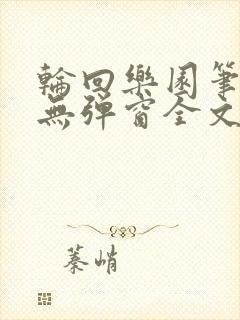 輪回樂園筆
無彈窗全文
蓁峭